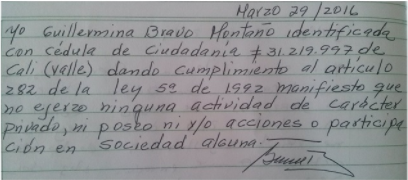 Marzo 29/2016
Yo Guillermina Bravo Montaño identificada
con cédula de Ciudadanía # 31.219.997 de
Cali (Valle) dando cumplimiento al artículo
282 de la ley 5ª de 1992 manifiesto que
no ejerzo ninguna actividad de carácter
privado, ni poseo ni y/o acciones o participa
ción en sociedad alguna.